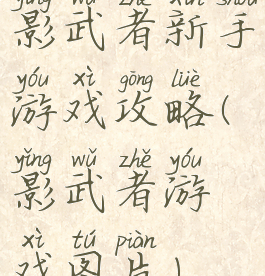 yǐng wǔ zhě xīn shǒu
影武者新手
yóu xì gōng lüè
游戏攻略(
yǐng wǔ zhě yóu
影武者游
xì tú piàn
戏图片)